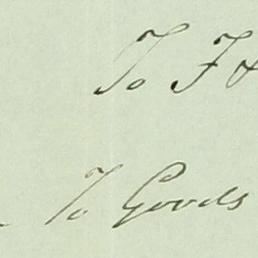 To F &
To Goods